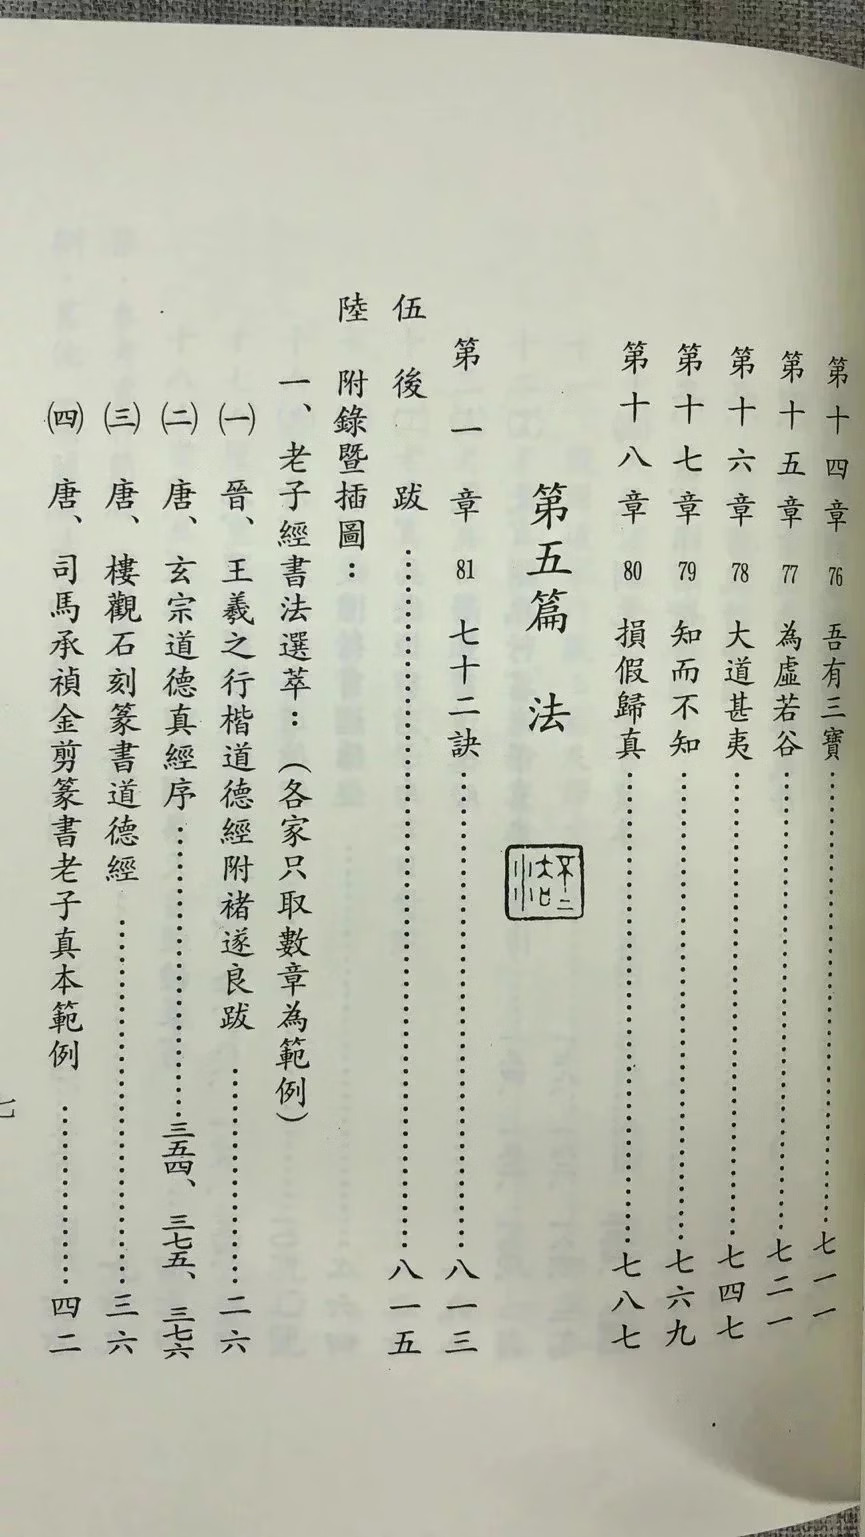 第十四章 76 吾有三寶……七一一
第十五章 77 為虛若谷……七二一
第十六章 78 大道甚夷……七四七
第十七章 79 知而不知……七六九
第十八章 80 損假歸真……七八七
第五篇 法
第一章 81 七十二訣……八一三
伍 後 跋……八一五
陸 附錄暨插圖：
一、老子經書法選萃：（各家只取數章為範例）
㈠ 晉、王羲之行楷道德經附褚遂良跋……二六
㈡ 唐、玄宗道德真經序……三五四、三七五、三七六
㈢ 唐、樓觀石刻篆書道德經……三六
㈣ 唐、司馬承禎金剪篆書老子真本範例……四二
七